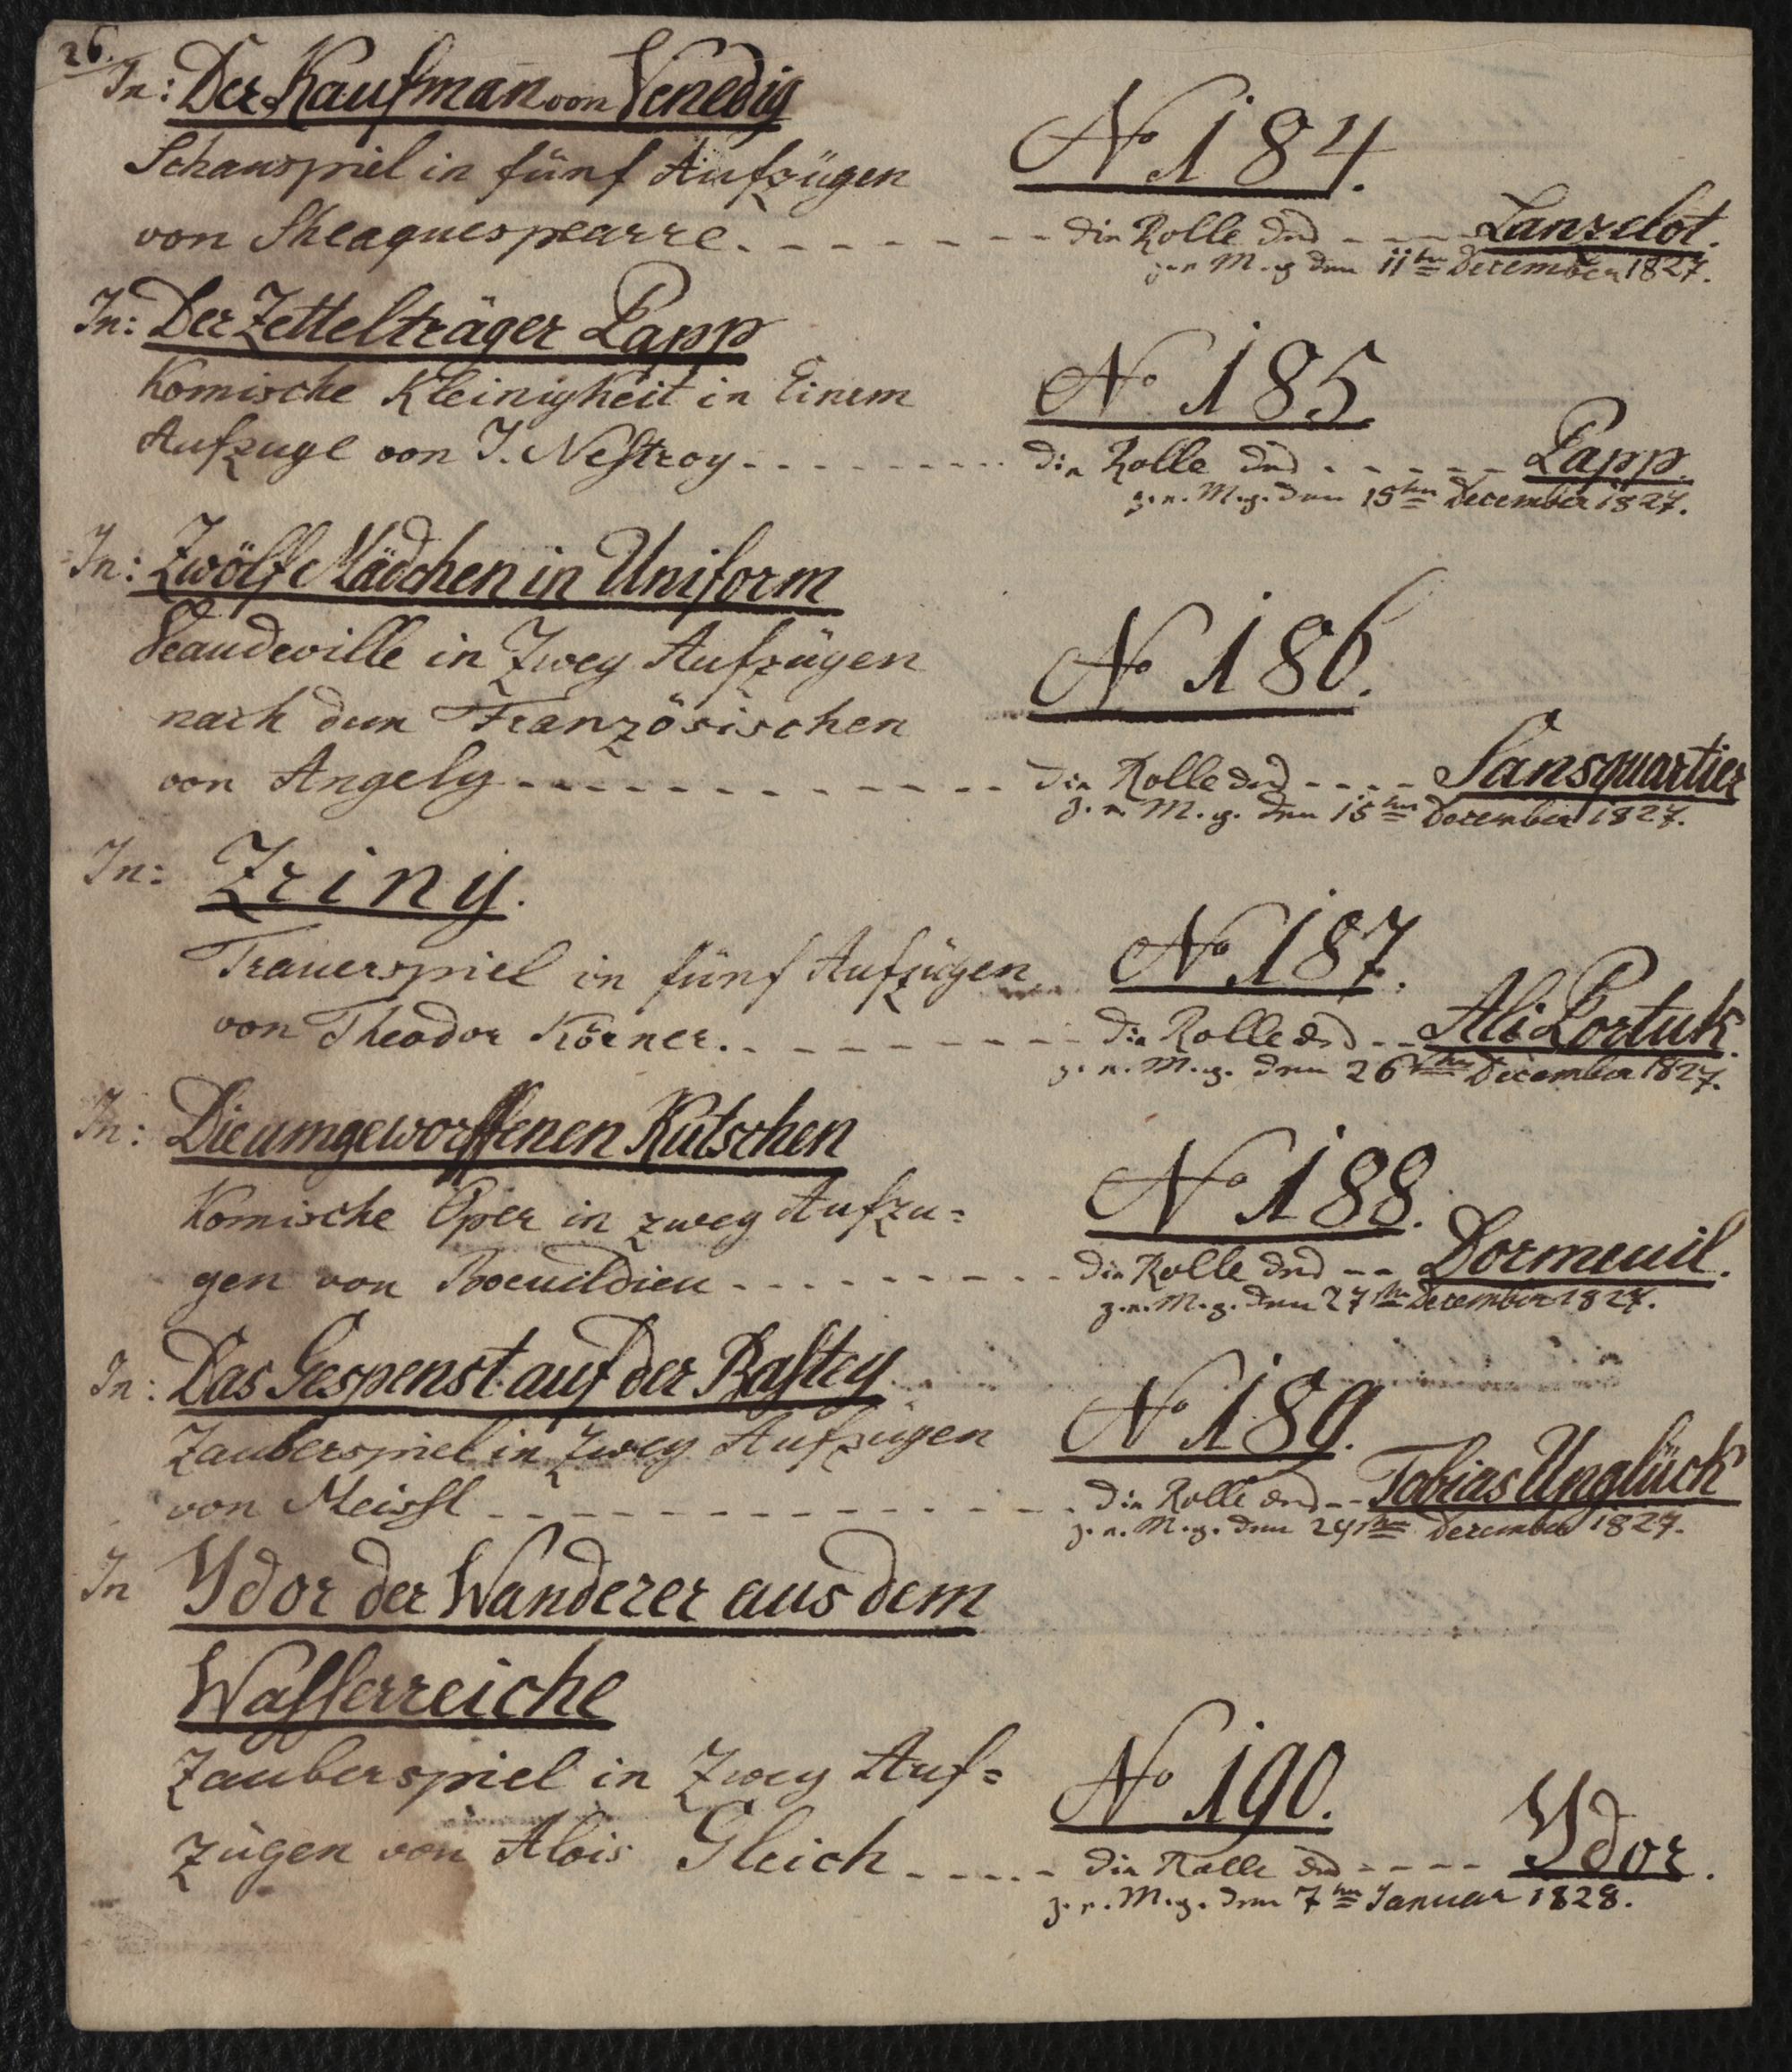 26.
In: Der Kaufman von Venedig
Schauspiel in fünf Aufzügen
No 184.
von Sheaquespearre. - - - - - - - die Rolle des - - - - Lanzelot.
z. e. M. g. den 11ten December 1827.
In: Der Zettelträger Papp
Komische Kleinigkeit in Einem
No 185.
Aufzuge von J. Nestroy - - - - - - - - die Rolle des - - - - - Papp.
z. e. M. g. den 15ten December 1827.
In: Zwölf Mädchen in Uniform
Veaudeville in Zwey Aufzügen
No 186.
nach dem Französischen
von Angely - - - - - - - - - - - die Rolle des - - - - Sansquartier
z. e. M. g. den 15ten December 1827.
In: Zriny.
Trauerspiel in fünf Aufzügen
No 187.
von Theodor Körner. - - - - - - - - die Rolle des - - Ali Portuk.
z. e. M. g. den 26ten December 1827.
In: Die umgeworffenen Kutschen
Komische Oper in zwey Aufzu=
No 188.
gen von Boeuildieu - - - - - - - - - die Rolle des - - Dormeuil.
z. e. M. g. den 27ten December 1827.
In: Das Gespenst auf der Bastey
Zauberspiel in Zwey Aufzügen
No 189.
von Meissl - - - - - - - - - - - - - die Rolle des - - Tobias Unglück
z. e. M. g. den 29ten December 1827.
In Ydor der Wanderer aus dem
Wasserreiche
Zauberspiel in Zwey Auf=
No 190.
zügen von Alois Gleich - - - - - die Rolle des - - - - Ydor.
z. e. M. g. den 7ten Januar 1828.